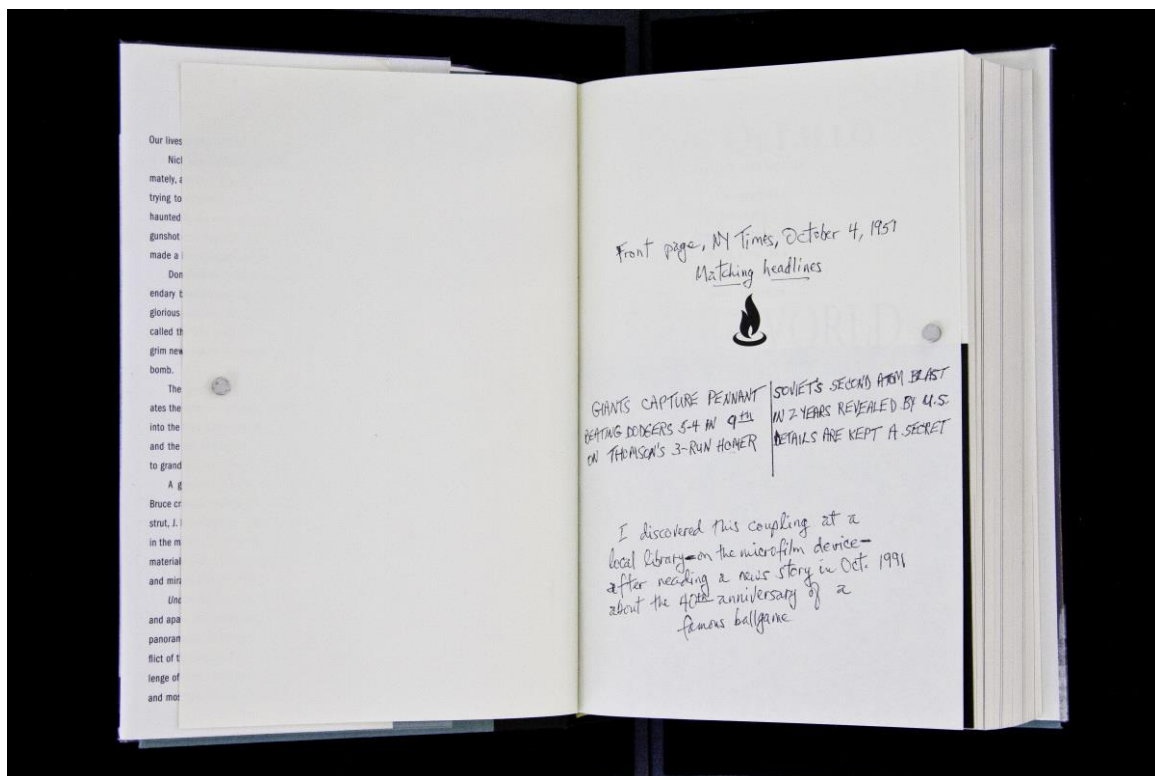 Our lives
Nic
mately, a
trying to
haunted
gunshot
made a
Don
endary b
glorious
called th
grim new
bomb.
The
ates the
into the
and the
to grand
A g
Bruce cr
strut, J.
in the m
material
and mira
Und
and apa
panoram
flict of t
lenge of
and mos
Front page, NY Times, October 4, 1951
Matching headlines
GIANTS CAPTURE PENNANT
BEATING DODGERS 5-4 IN 9th
ON THOMSON'S 3-RUN HOMER
SOVIET'S SECOND ATOM BLAST
IN 2 YEARS REVEALED BY U.S.
DETAILS ARE KEPT A SECRET
I discovered this coupling at a
local library—on the microfilm device—
after reading a news story in Oct. 1991
about the 40th anniversary of a
famous ballgame